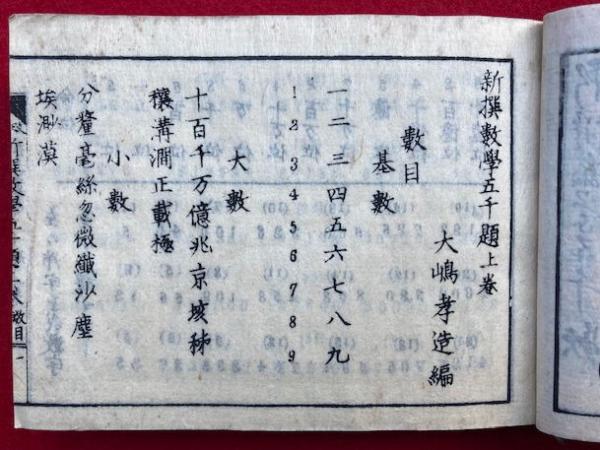 新撰數學五千題上卷
大嶋孝造編
數目
基數
一二三四五六七八九
1 2 3 4 5 6 7 8 9
大數
十百千万億兆京垓秭
穰溝澗正載極
小數
分釐毫絲忽微纖沙塵
埃渺漠
新撰數學五千題
數目
一